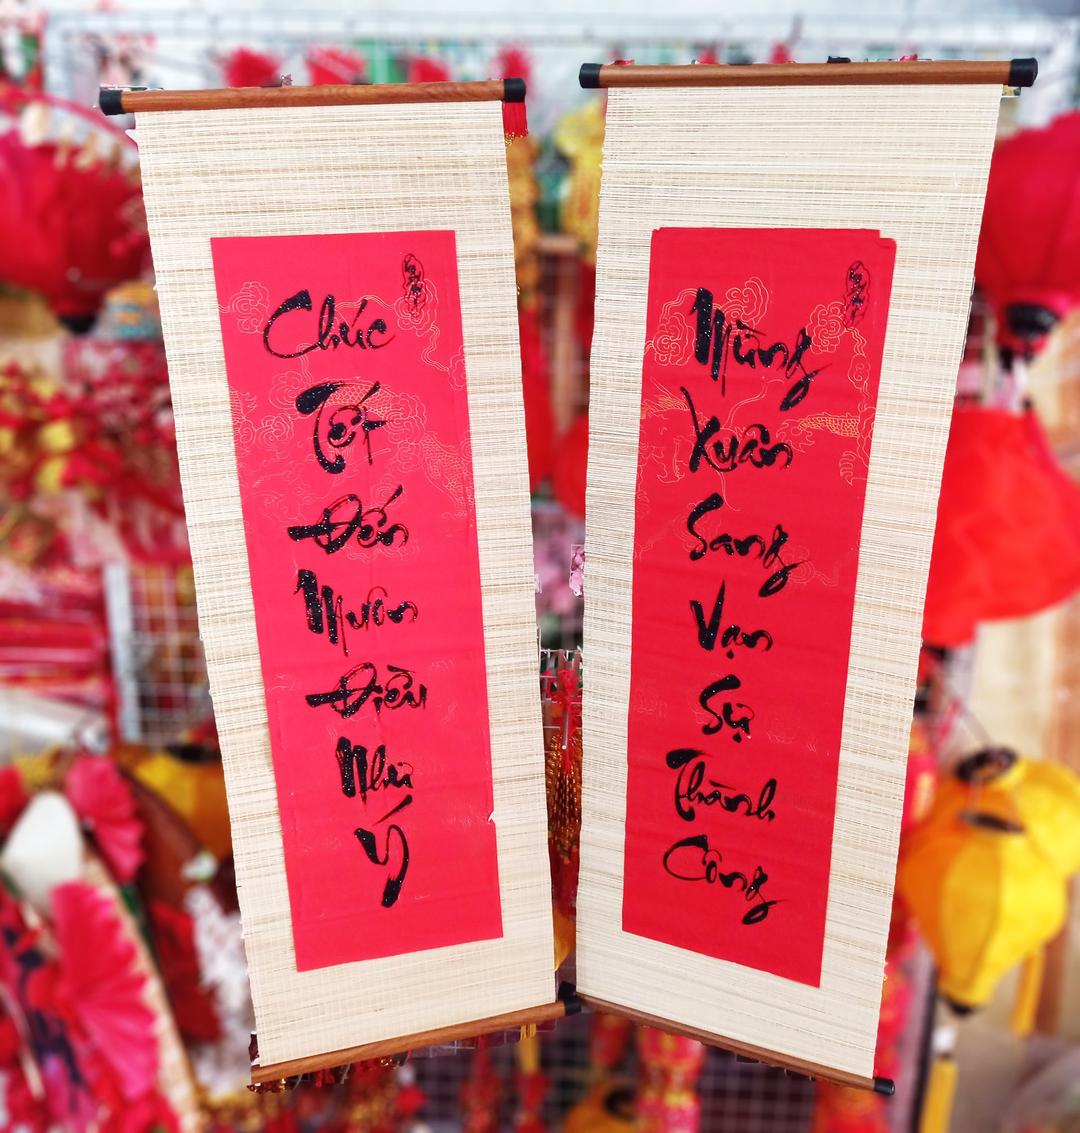 Chúc
Tết
Đến
Muôn
Điều
Như
Ý
Mừng
Xuân
Sang
Vạn
Sự
Thành
Công